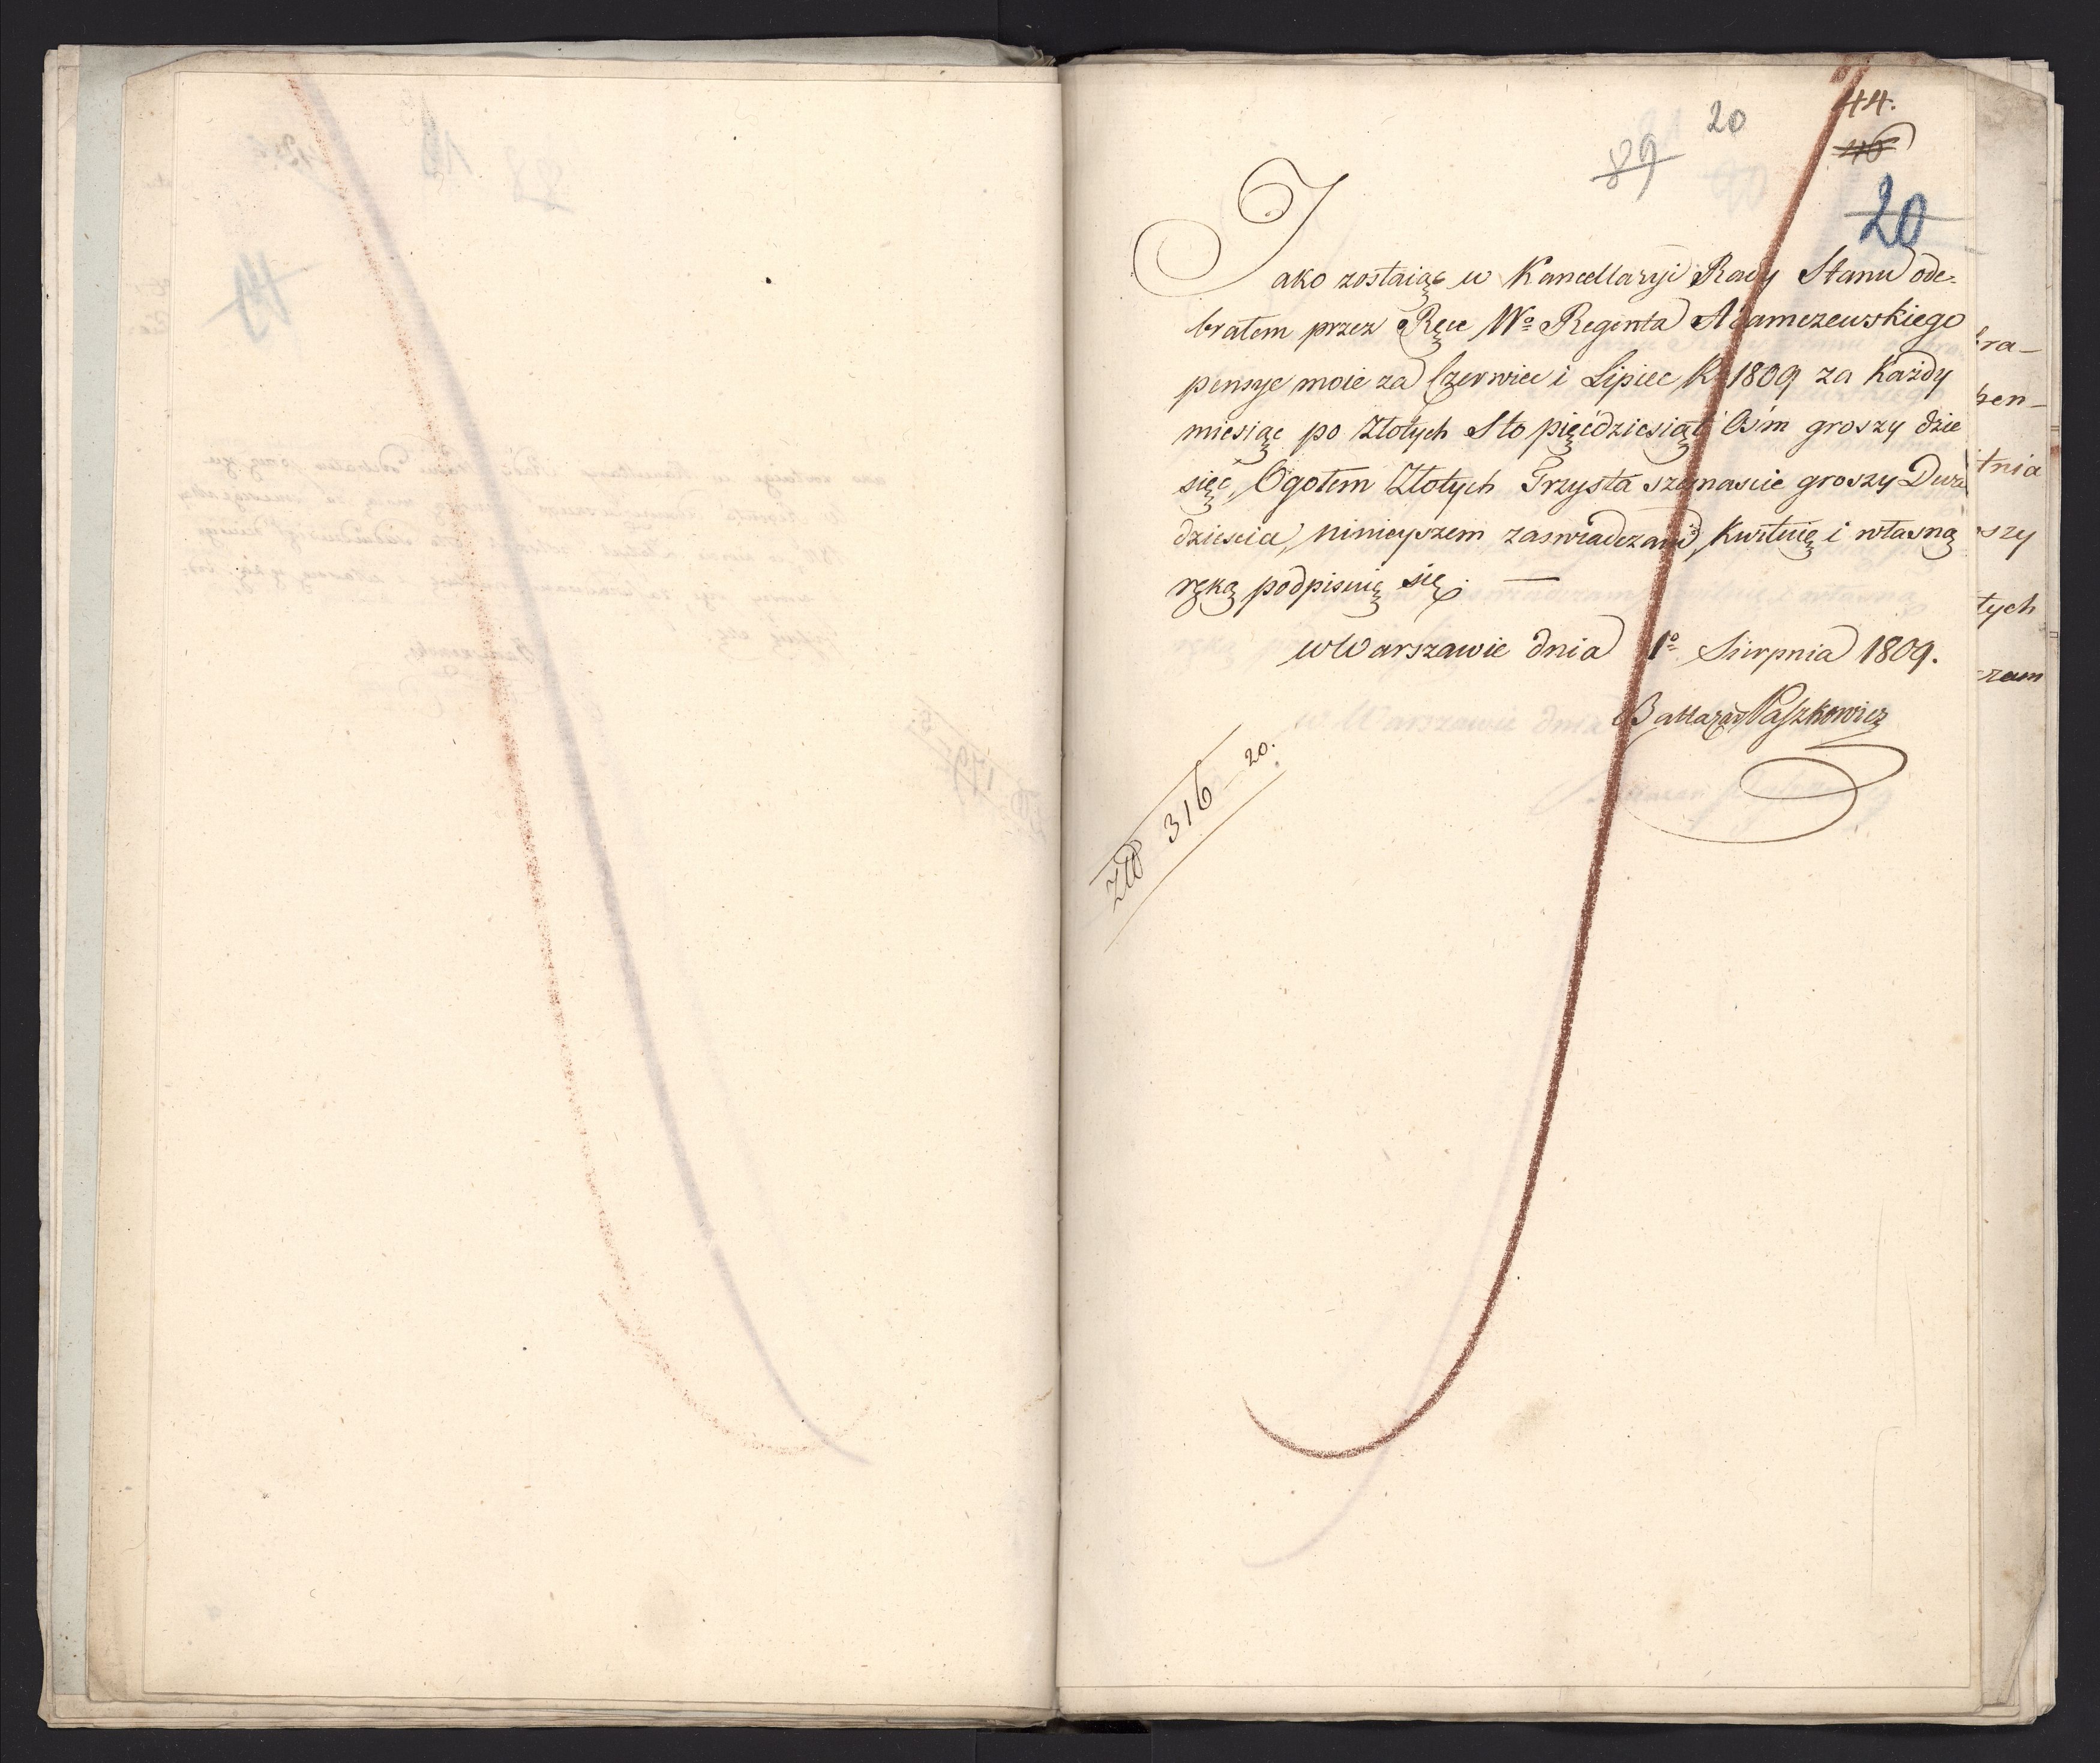 44.
20
89
46
20
Jako zostaiąc w Kancellaryi Rady Stanu ode-
brałem przez Ręce Wo Regenta Adamczewskiego
pensyę moie za Czerwiec i Lipiec R 1809 za Każdy
miesiąc po Złotych Sto pięćdziesiąt Ośm groszy dzie
sięć, Ogołem Złotych Trzysta szesnaście groszy Dwa
dzieścia, ninieyszem zaswiadczam, Kwituię i własną
ręką podpisuię się. —
w Warszawie dnia 1o Sierpnia 1809.
Baltazar Paszkowicz
Złp 316 20.
bra-
pen-
tnia
oszy
tych
czam